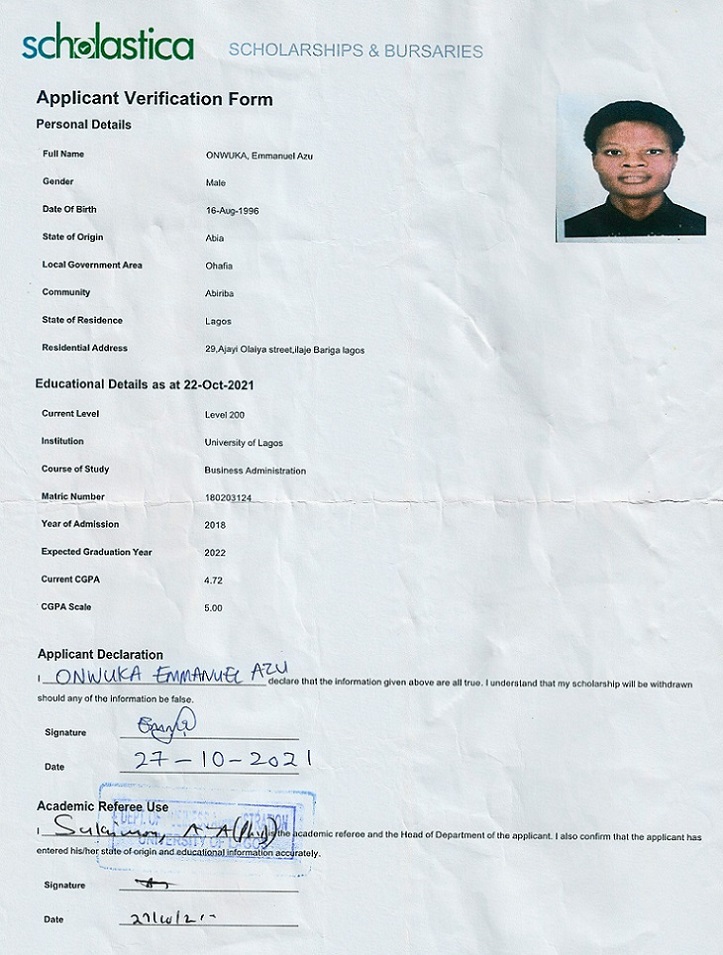 scholastica SCHOLARSHIPS & BURSARIES
Applicant Verification Form
Personal Details
Full Name ONWUKA, Emmanuel Azu
Gender Male
Date Of Birth 16-Aug-1996
State of Origin Abia
Local Government Area Ohafia
Community Abiriba
State of Residence Lagos
Residential Address 29,Ajayi Olaiya street,ilaje Bariga lagos
Educational Details as at 22-Oct-2021
Current Level Level 200
Institution University of Lagos
Course of Study Business Administration
Matric Number 180203124
Year of Admission 2018
Expected Graduation Year 2022
Current CGPA 4.72
CGPA Scale 5.00
Applicant Declaration
I ONWUKA EMMANUEL AZU declare that the information given above are all true. I understand that my scholarship will be withdrawn
should any of the information be false.
Signature
Date 27-10-2021
Academic Referee Use
DEPT. OF BUSINESS ADMINISTRATION
I the academic referee and the Head of Department of the applicant. I also confirm that the applicant has
UNIVERSITY OF LAGOS
entered his/her state of origin and educational information accurately.
Signature
Date